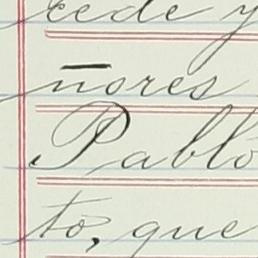 cede y
ñores
Pablo
to, que